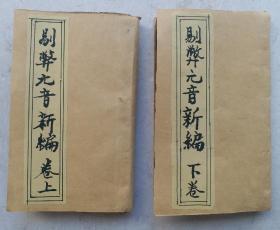 剔弊元音新編卷上
剔弊元音新編下卷